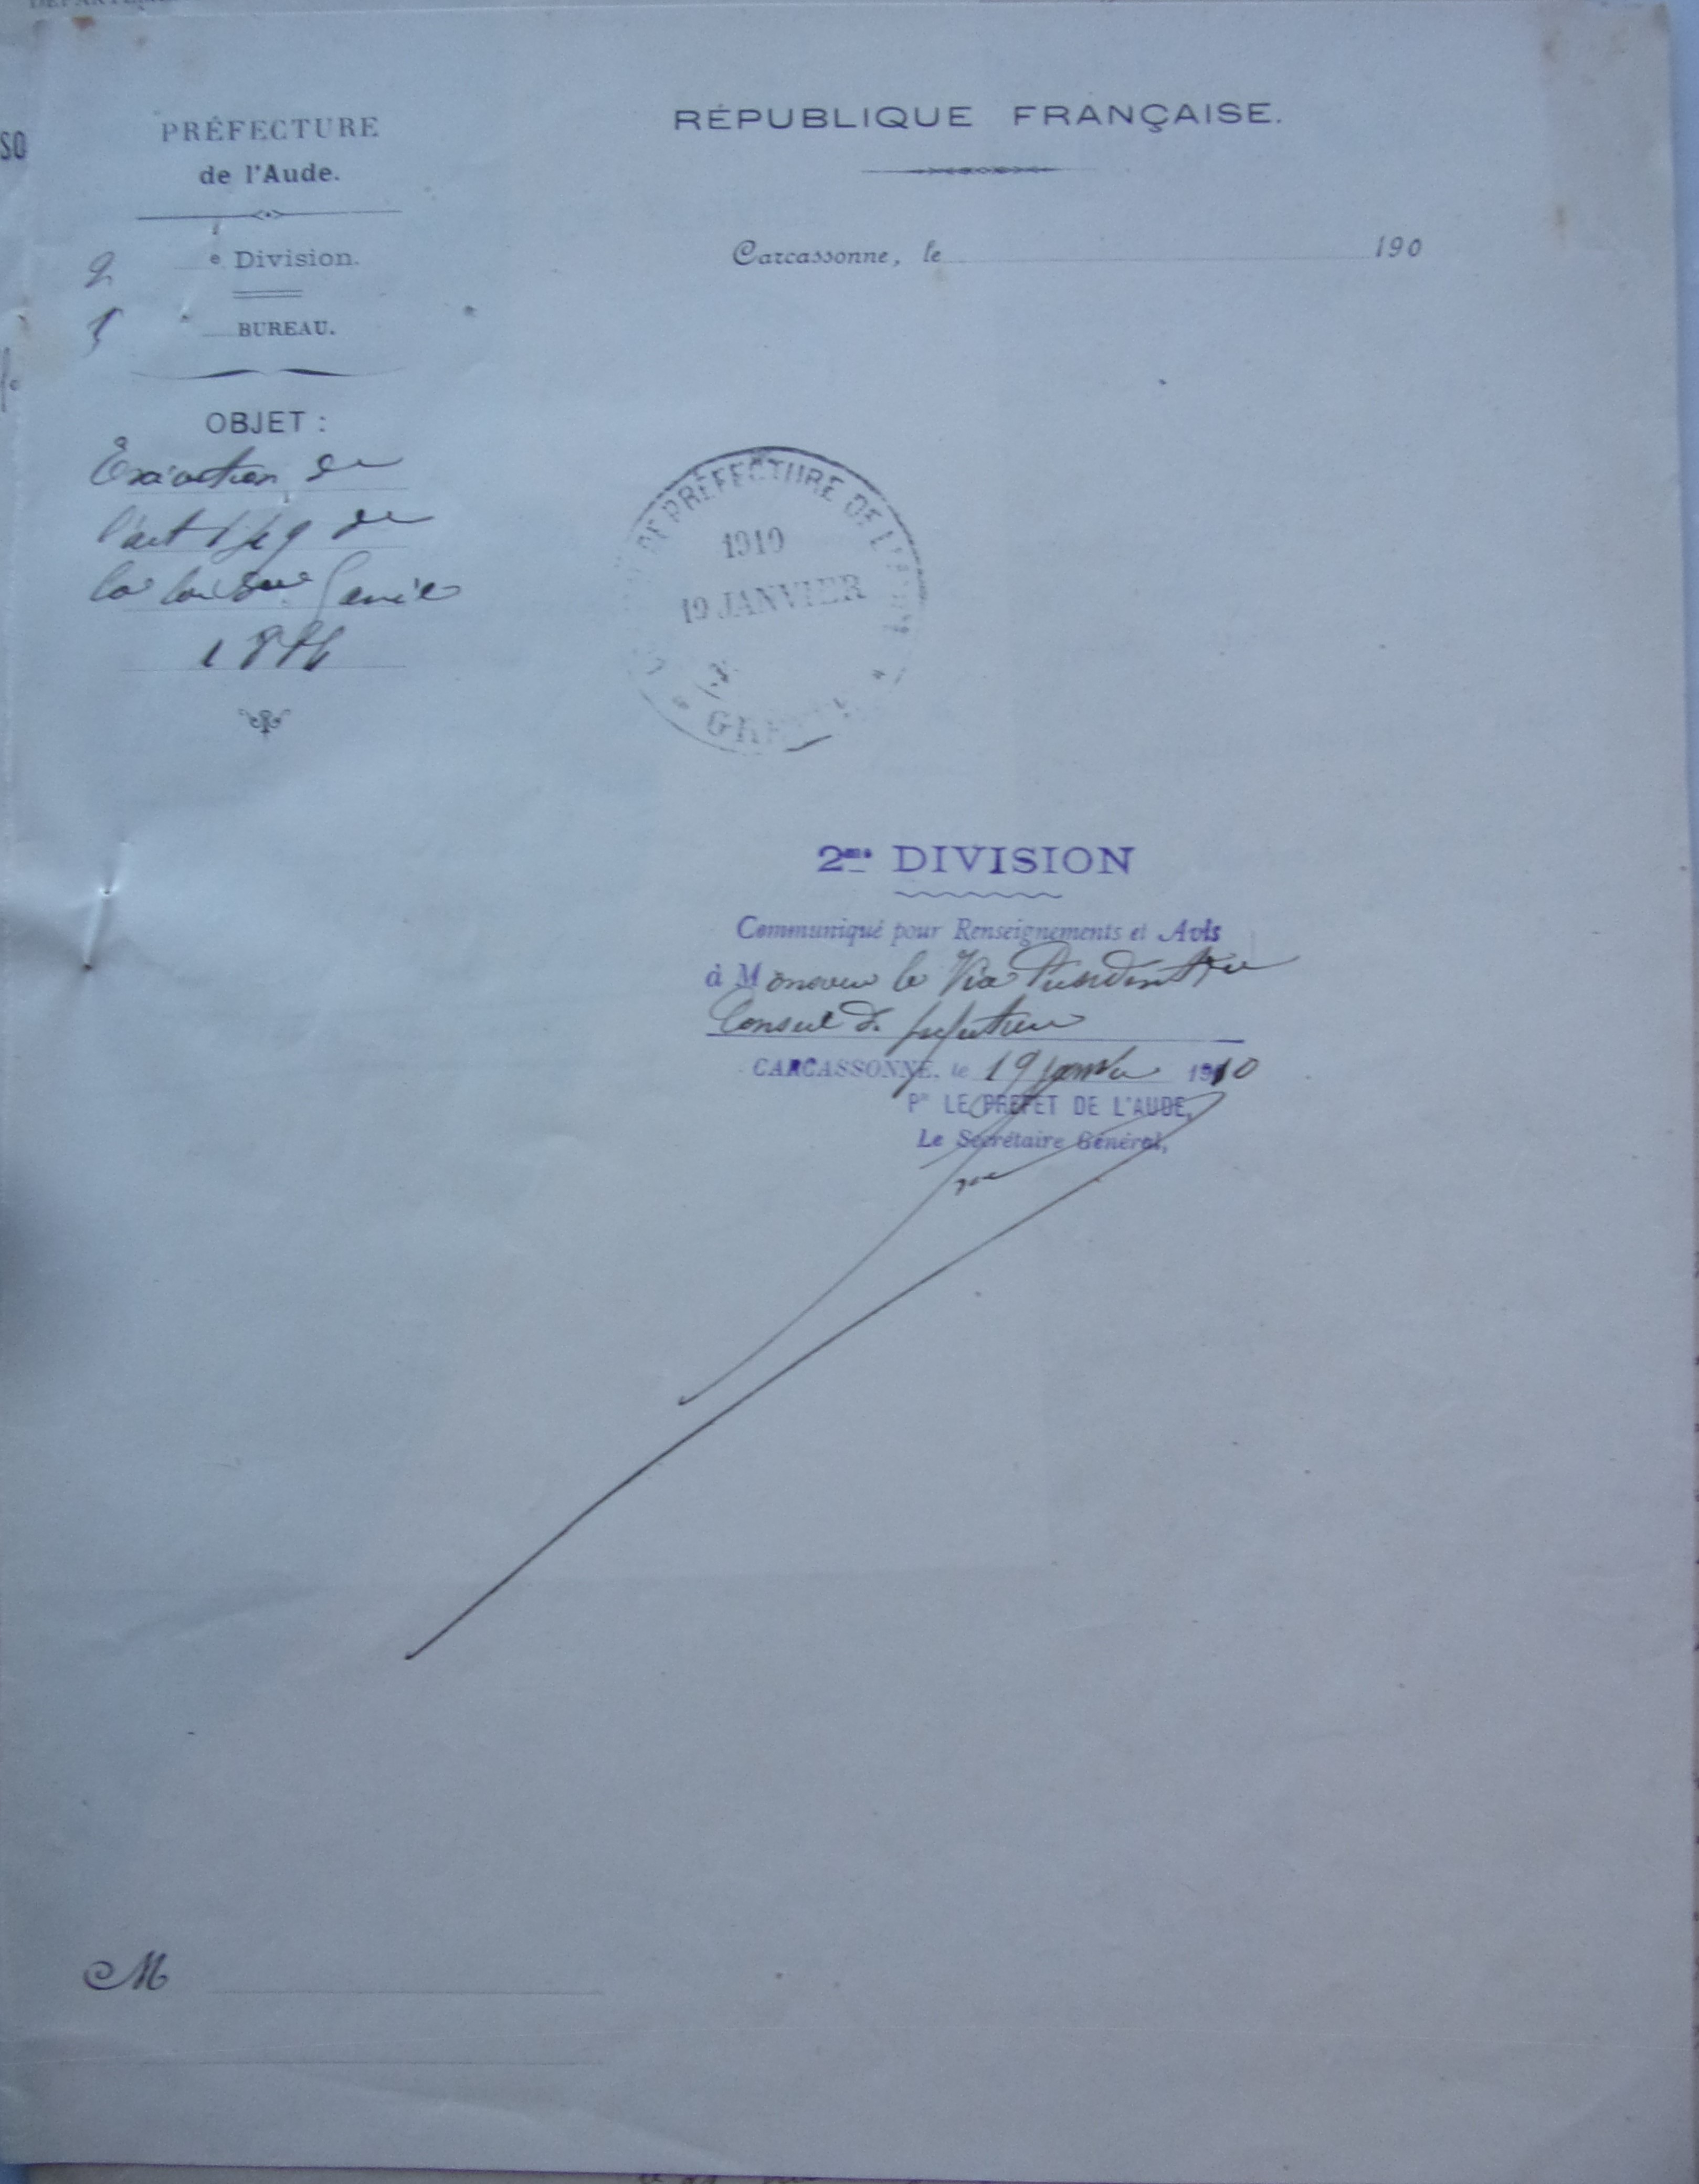 PRÉFECTURE
de l'Aude.
2 e Division.
1 BUREAU.
OBJET :
Exécution de
l'art 149 de
la loi du 5 avril
1884
RÉPUBLIQUE FRANÇAISE.
Carcassonne, le 190
DE PRÉFECTURE DE L'
1910
19 JANVIER
2me DIVISION
Communiqué pour Renseignements et Avis
à Monsieur le Vice Président du
Conseil de préfecture
CARCASSONNE, le 19 janvier 1910
Pr LE PRÉFET DE L'AUDE,
Le Secrétaire Général,
M